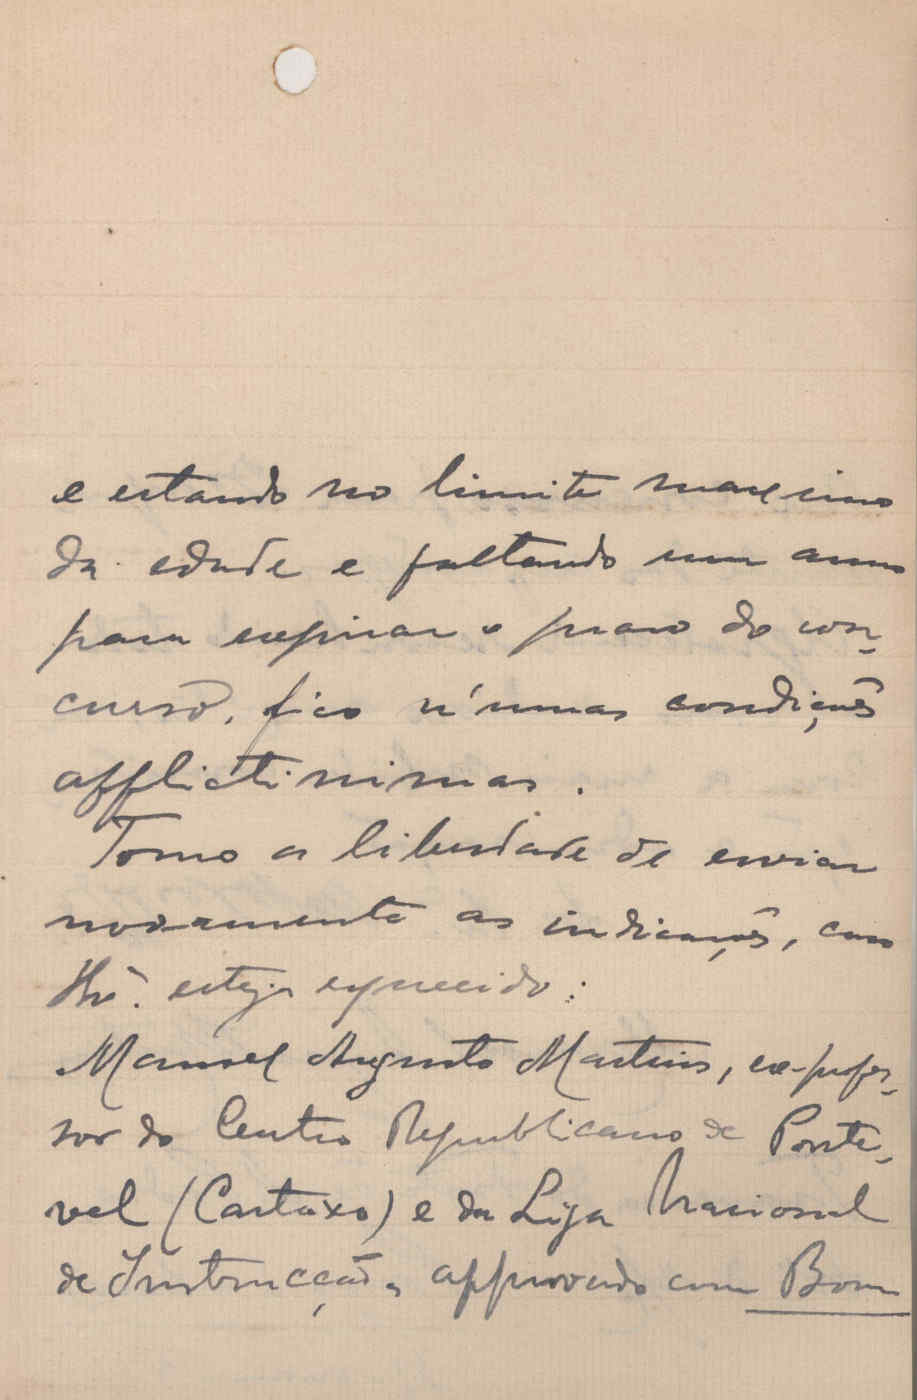 e estando no limite maximo
da edade e faltando um anno
para expirar o praso do con-
curso, fico n'umas condições
afflictissimas.
Tomo a liberdade de enviar
novamente as indicações, caso
esteja esquecido:
Manuel Augusto Martins, ex-profes-
sor do Centro Republicano de Ponte-
vel (Cartaxo) e da Liga Nacional
de Instrucção, approvado com Bom